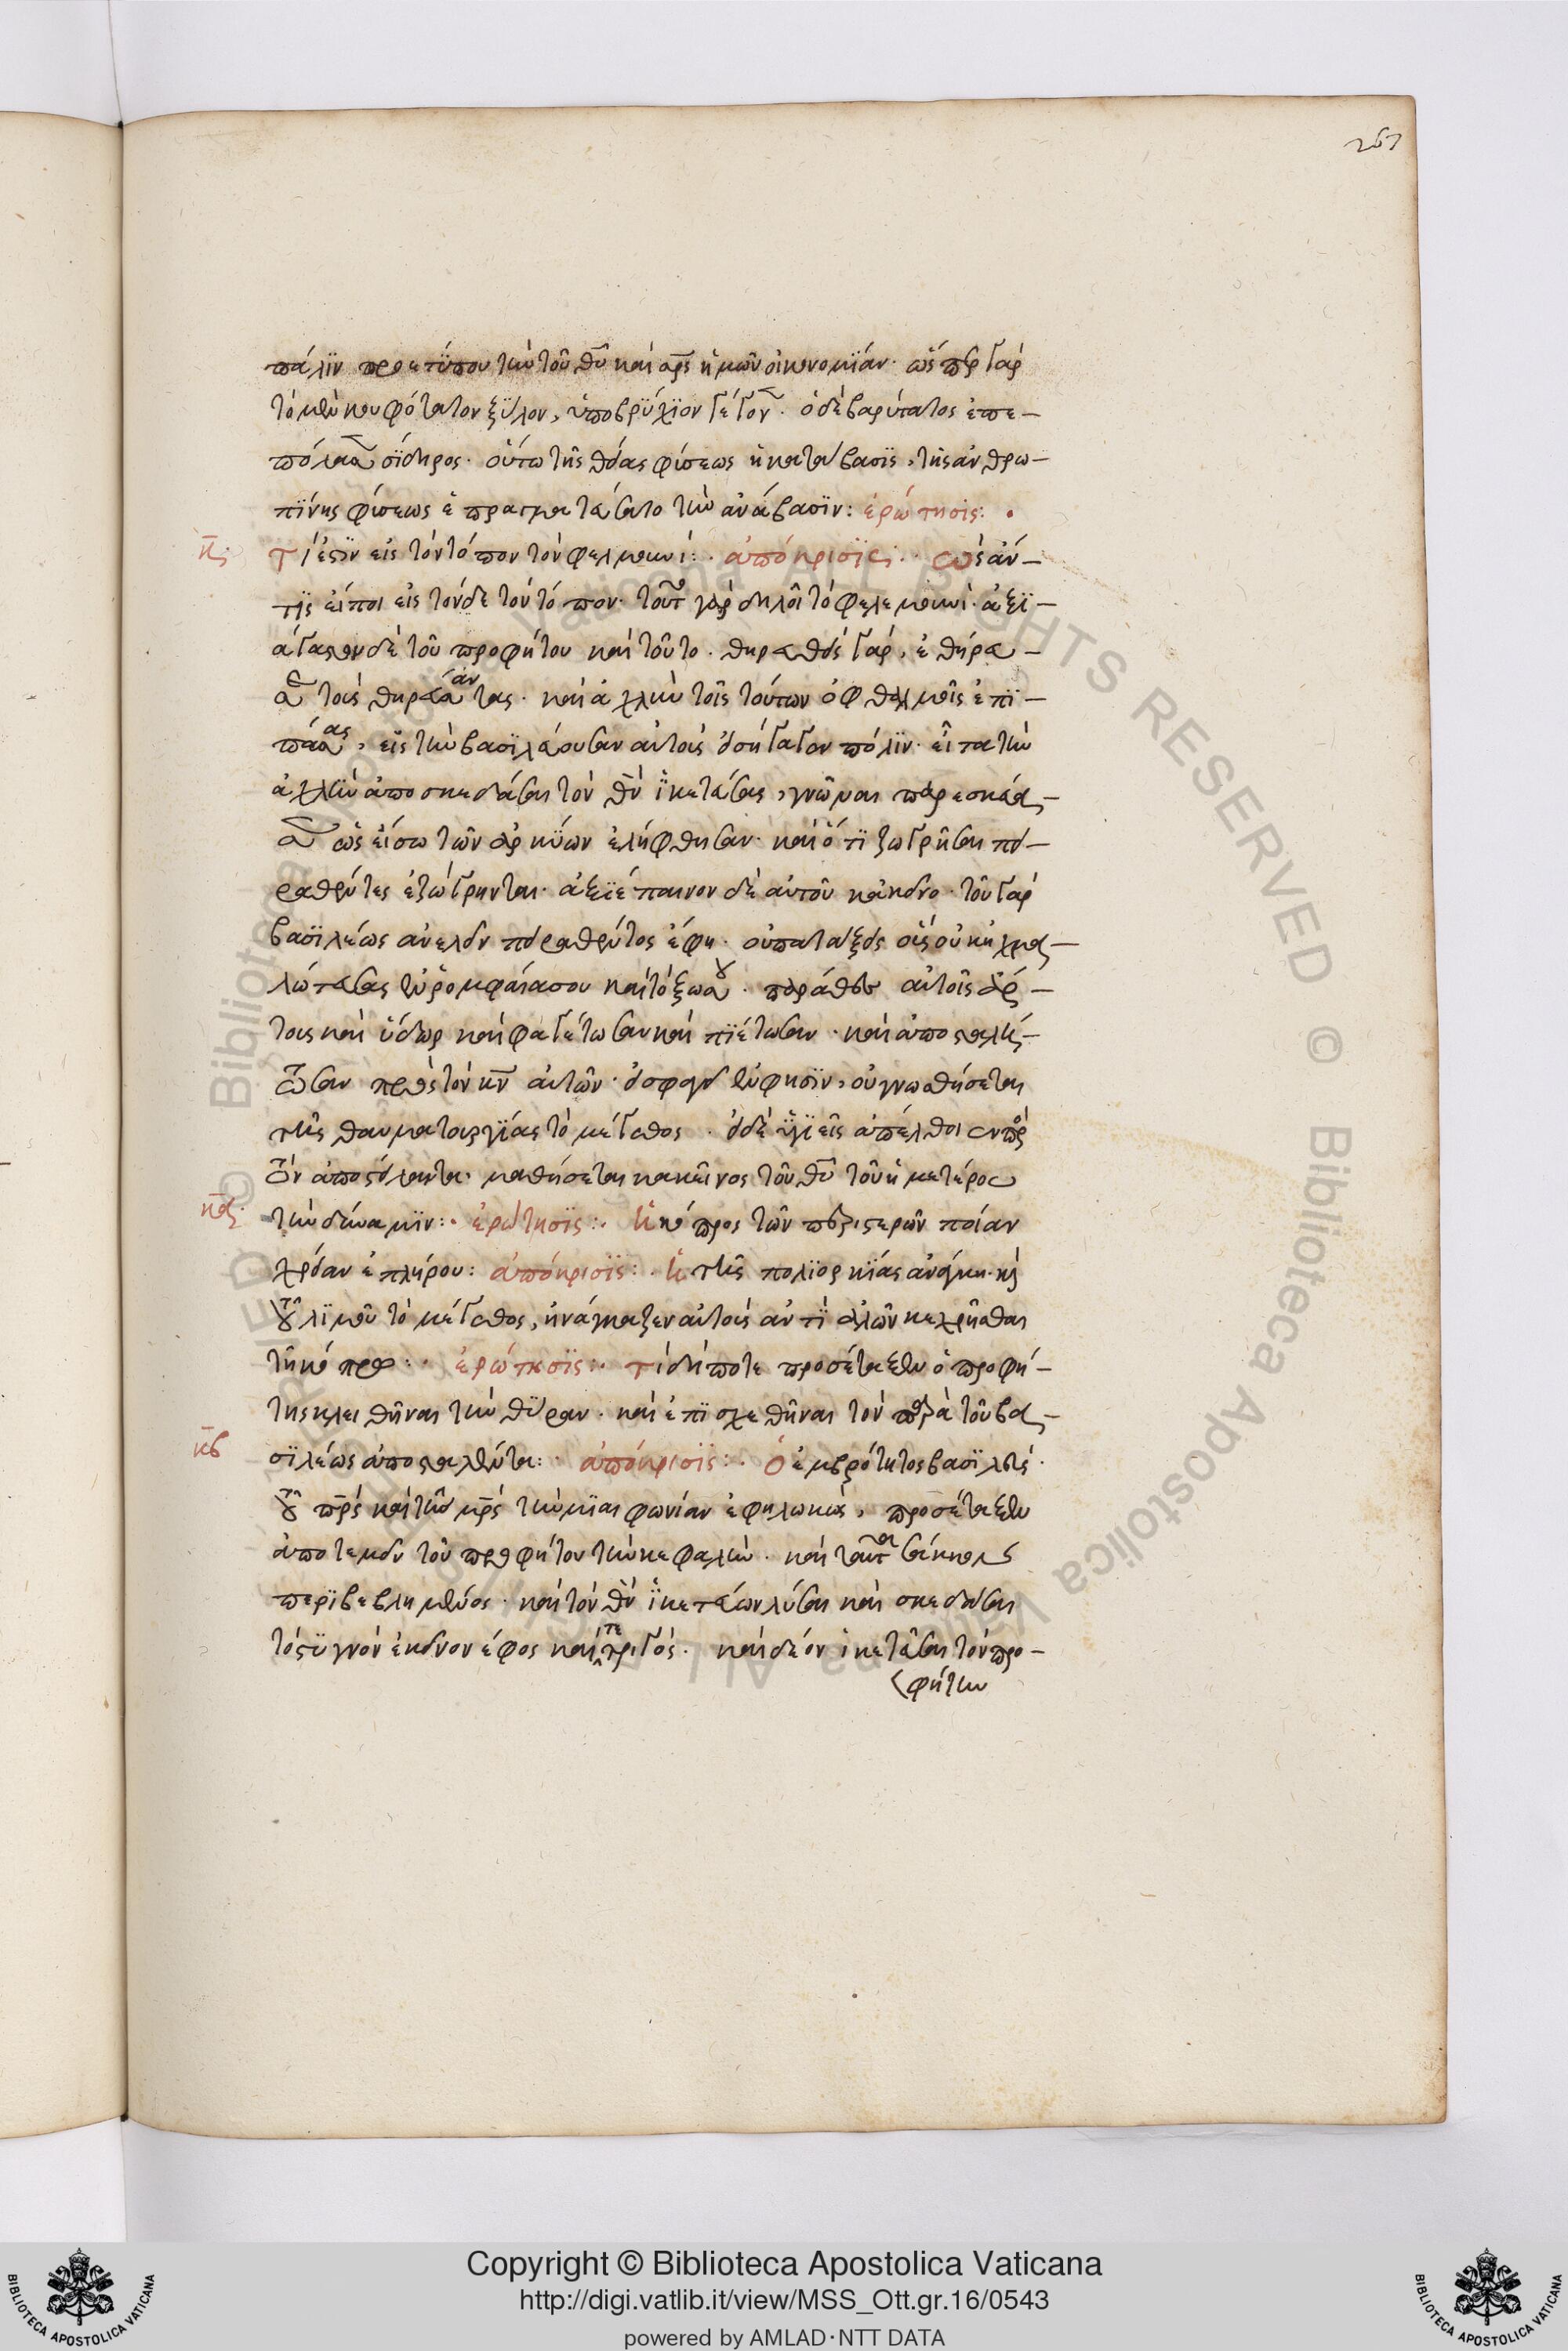 267
πάλϊν προετύπου τὴν τοῦ θυ καὶ σρς ἡμῶν οἰκονομΐαν· ὥσπερ γὰρ
τὸ μὲν κουφότατον ξύλον, ὑποβρύχϊον γέγον· ὁ δὲ βαρύτατος ἐπε-
πόλασε σίδηρος· οὕτω τῆς θείας φύσεως ἡ κατάβασϊς, τῆς ἀνθρω-
πΐνης φύσεως ἐπραγματεύσατο τὴν ἀνάβασϊν: ἐρώτησις:
κ Τί ἐστὶν εἰς τὸν τόπον τὸν φελμουνί: ἀπόκρισϊς: ὡς ἄν
τϊς εἴποι εἰς τόνδε τὸν τόπον· τοῦτο γὰρ δηλοῖ τὸ φελεμουνί· ἀξϊ-
άγαστον δὲ τοῦ προφήτου καὶ τοῦτο· θηραθεὶς γὰρ, ἐθήρευ-
σε τοὺς θηρεύσαντας· καὶ ἀχλὺν τοῖς τούτων ὀφθαλμοῖς ἐπϊ-
πάσας, εἰς τὴν βασϊλεύουσαν αὐτοὺς εἰσήγαγον πόλϊν· εἶτα τὴν
ἀχλὺν ἀποσκεδάσαι τὸν θν ϊκετεύσας, γνῶναι παρεσκεύα-
σε ὡς εἴσω τῶν ἀρκύων ἐλήφθησαν· καὶ ὅτϊ ζωγρῆσαι πει-
ραθέντες ἐζώγρηνται· ἀξϊέπαινον δὲ αὐτοῦ κἀκεῖνο· τοῦ γὰρ
βασϊλέως ἀνελεῖν πειραθέντος ἔφη· οὐ πατάξεις οὓς οὐκ ἠχμα-
λώτευσας ἐν ῥομφαία σου καὶ τόξω σου· παράθες αὐτοῖς ἄρ-
τους καὶ ὕδωρ καὶ φαγέτωσαν καὶ πϊέτωσαν· καὶ ἀποσταλή-
τωσαν πρὸς τὸν κν αὐτῶν· εἰ σφαγεῖεν φησϊν, οὐ γνωσθήσεται
τῆς θαυματουργΐας τὸ μέγεθος· εἰ δὲ ὑγιεῖς ἀπέλθοιεν πρὸς
τὸν ἀποστείλαντα· μαθήσεται κακεῖνος τοῦ θυ τοῦ ἡμετέρου
κα τὴν δύναμϊν: ἐρώτησϊς: Ἡ κόπρος τῶν περιστερῶν ποίαν
χρείαν ἐπλήρου: ἀπόκρισϊς: Ἡ τῆς πολϊορκΐας ἀνάγκη· καὶ
τοῦ λϊμοῦ τὸ μέγεθος, ἠνάγκαζεν αὐτοὺς ἀντῒ ἁλῶν κεχρῆσθαι
τῇ κόπρω: ἐρώτησϊς: Τί δήποτε προσέταξεν ὁ προφή-
της κλεισθῆναι τὴν θύραν· καὶ ἐπϊσχεθῆναι τὸν παρὰ τοῦ βα-
κβ σϊλέως ἀποσταλέντα: ἀπόκρισϊς: Ὁ ἐμβρότητος βασϊλεὺς·
τοῦ πρς καὶ τῆς μρς τὴν μϊαιφωνίαν ἐφηλωκὼς, προσέταξεν
ἀποτεμεῖν τοῦ προφήτου τὴν κεφαλὴν· καὶ ταῦτα σάκκον
περϊβεβλημένος· καὶ τὸν θν ϊκετεύων λῦσαι καὶ σκεδάσαι
τὸ στυγνὸν ἐκεῖνον έφος καὶ πετριγός· καὶ δέον ἱκετεῦσαι τὸν προ-
φήτην
Copyright © Biblioteca Apostolica Vaticana
http://digi.vatlib.it/view/MSS_Ott.gr.16/0543
powered by AMLAD·NTT DATA